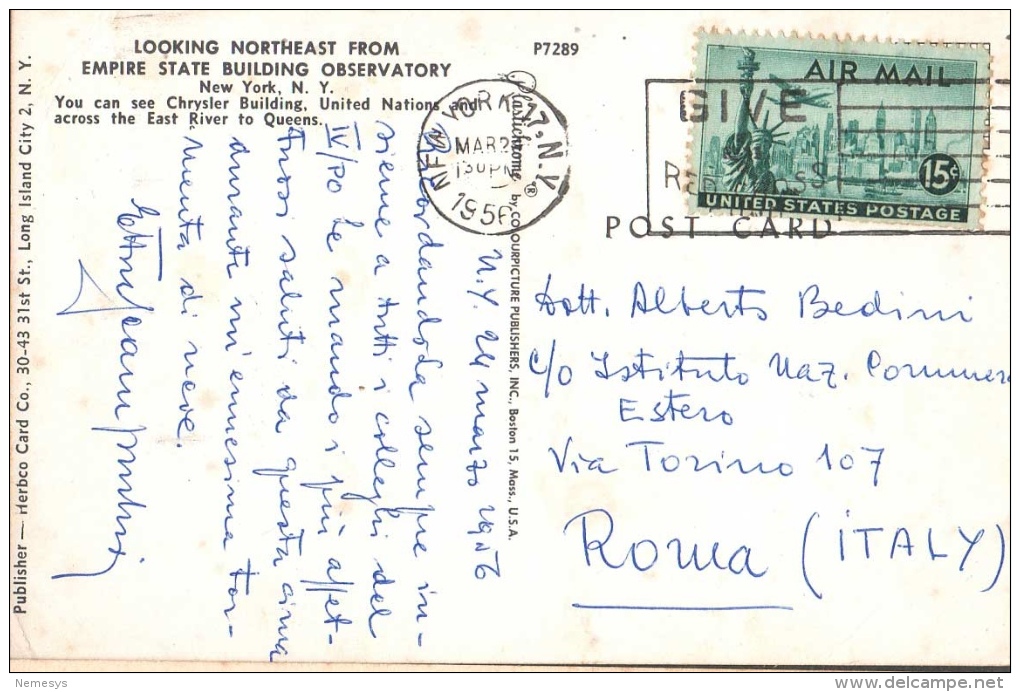 LOOKING NORTHEAST FROM
EMPIRE STATE BUILDING OBSERVATORY
New York, N. Y.
You can see Chrysler Building, United Nations and
across the East River to Queens.
P7289
Publisher — Herbco Card Co., 30-43 31st St., Long Island City 2, N. Y.
Plastichrome ® by COLOURPICTURE PUBLISHERS, INC., Boston 15, Mass., U.S.A.
NEW YORK 17, N.Y.
MAR 2
130 PM
1956
GIVE
AIR MAIL
15c
UNITED STATES POSTAGE
POST CARD
N.Y. 24 marzo 1956
Ricordandola sempre in-
sieme a tutti i colleghi del
IV/PO Le mando i più affet-
tuosi saluti da questa cima
durante un'ennesima tor-
menta di neve.
Dott. Alberto Bedini
c/o Istituto Naz. Commerc
Estero
Via Torino 107
Roma (ITALY)
Nemesys
www.delcampe.net